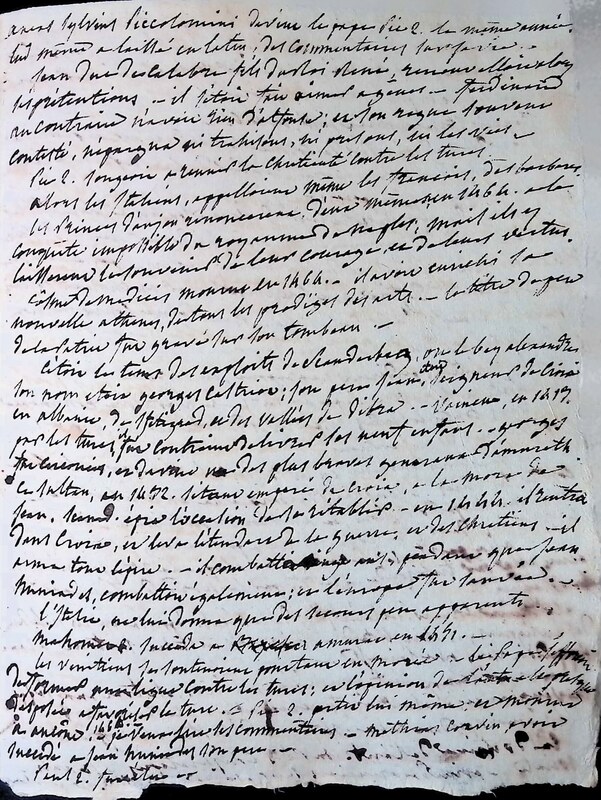 aneas Sylvius Piccolomini devient le pape Pie 2. la même année.
lui même a laissé en latin, des commentaires sur sa vie.
Jean duc de Calabre fils du Roi René, renouvella alors
ses prétentions — il s'étoit fait aimer a gênes — ferdinand
au contraire n'avoit rien d'alfonse; et son règne souvent
contesté, n'épargna ni trahisons, ni prisons, ni les vies —
Pie 2. songeoit a réunir la chrétienté contre les turcs
alors les Italiens, appelloient même les français, des barbares.
les Princes d'anjou renoncerent d'eux mêmes en 1464. a la
conquête impossible du royaume de naples, mais ils y
laisserent le souvenir de leur courage et de leurs vertus.
Côme de medicis mourut en 1464. — il avoit enrichi sa
nouvelle athenes, de tous les prodiges des arts. — le titre de père
de la patrie fut gravé sur son tombeau. —
C'étoit le tems des exploits de scanderbeg, ou le bey alexandre
son nom étoit georges Castriot; son pere Jean, étoit seigneur de Croia
en albanie, de et des vallées de dibra. — Vaincu en 1413.
par les turcs, il fut contraint de livrer ses neuf enfans. — georges
fut circoncis, et devint un des plus braves generaux d'amurath.
Ce sultan, en 1432. s'étant emparé de Croia, a la mort de
Jean, épia l'occasion de se rétablir — en 1444. il rentra
dans Croia, et leva l'étendard de la guerre, et des chretiens — il
arma toute l'épire. — il combattit ans, pendant que Jean
huniades, combattoit également; et l'europe fut sauvée. —
l'Italie, ne lui donna que des secours peu apparents.
Mahomet 2. succeda a amurat en 1451. —
les venitiens se soutenoient pourtant en morée — le Pape
de former une ligue contre les turcs; et l'opinion de
disposée a favoriser le turc. — Pie 2. partit lui même, et mourut
a ancône 1464. — je venois de lire ses commentaires — mathias corvin avoit
succédé a Jean huniades son pere —
Paul 2.